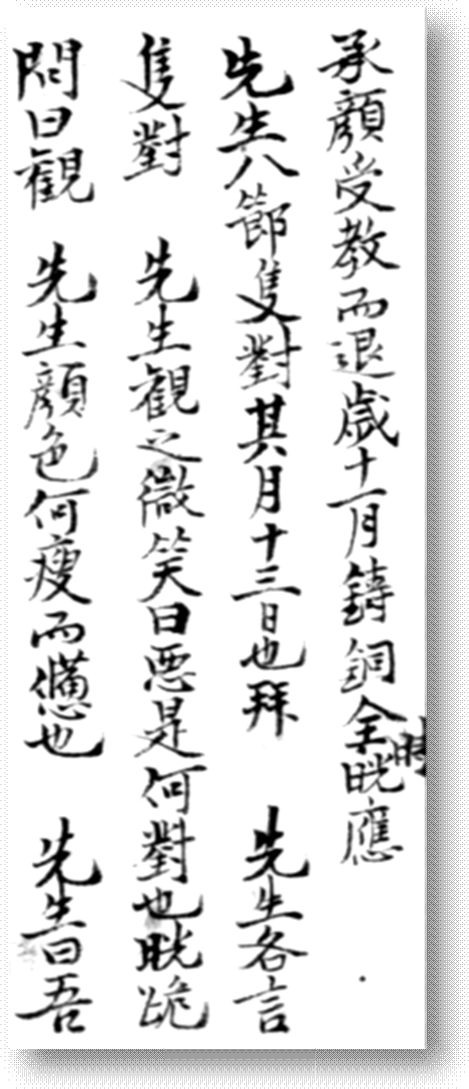 承顔受教而退歳十一月鋳銅全時晄應
先生八節隻對其月十三日也拜 先生各言
隻對 先生觀之微笑曰悪是何對也晄跪
問曰觀 先生顔色何瘦而憊也 先生曰吾